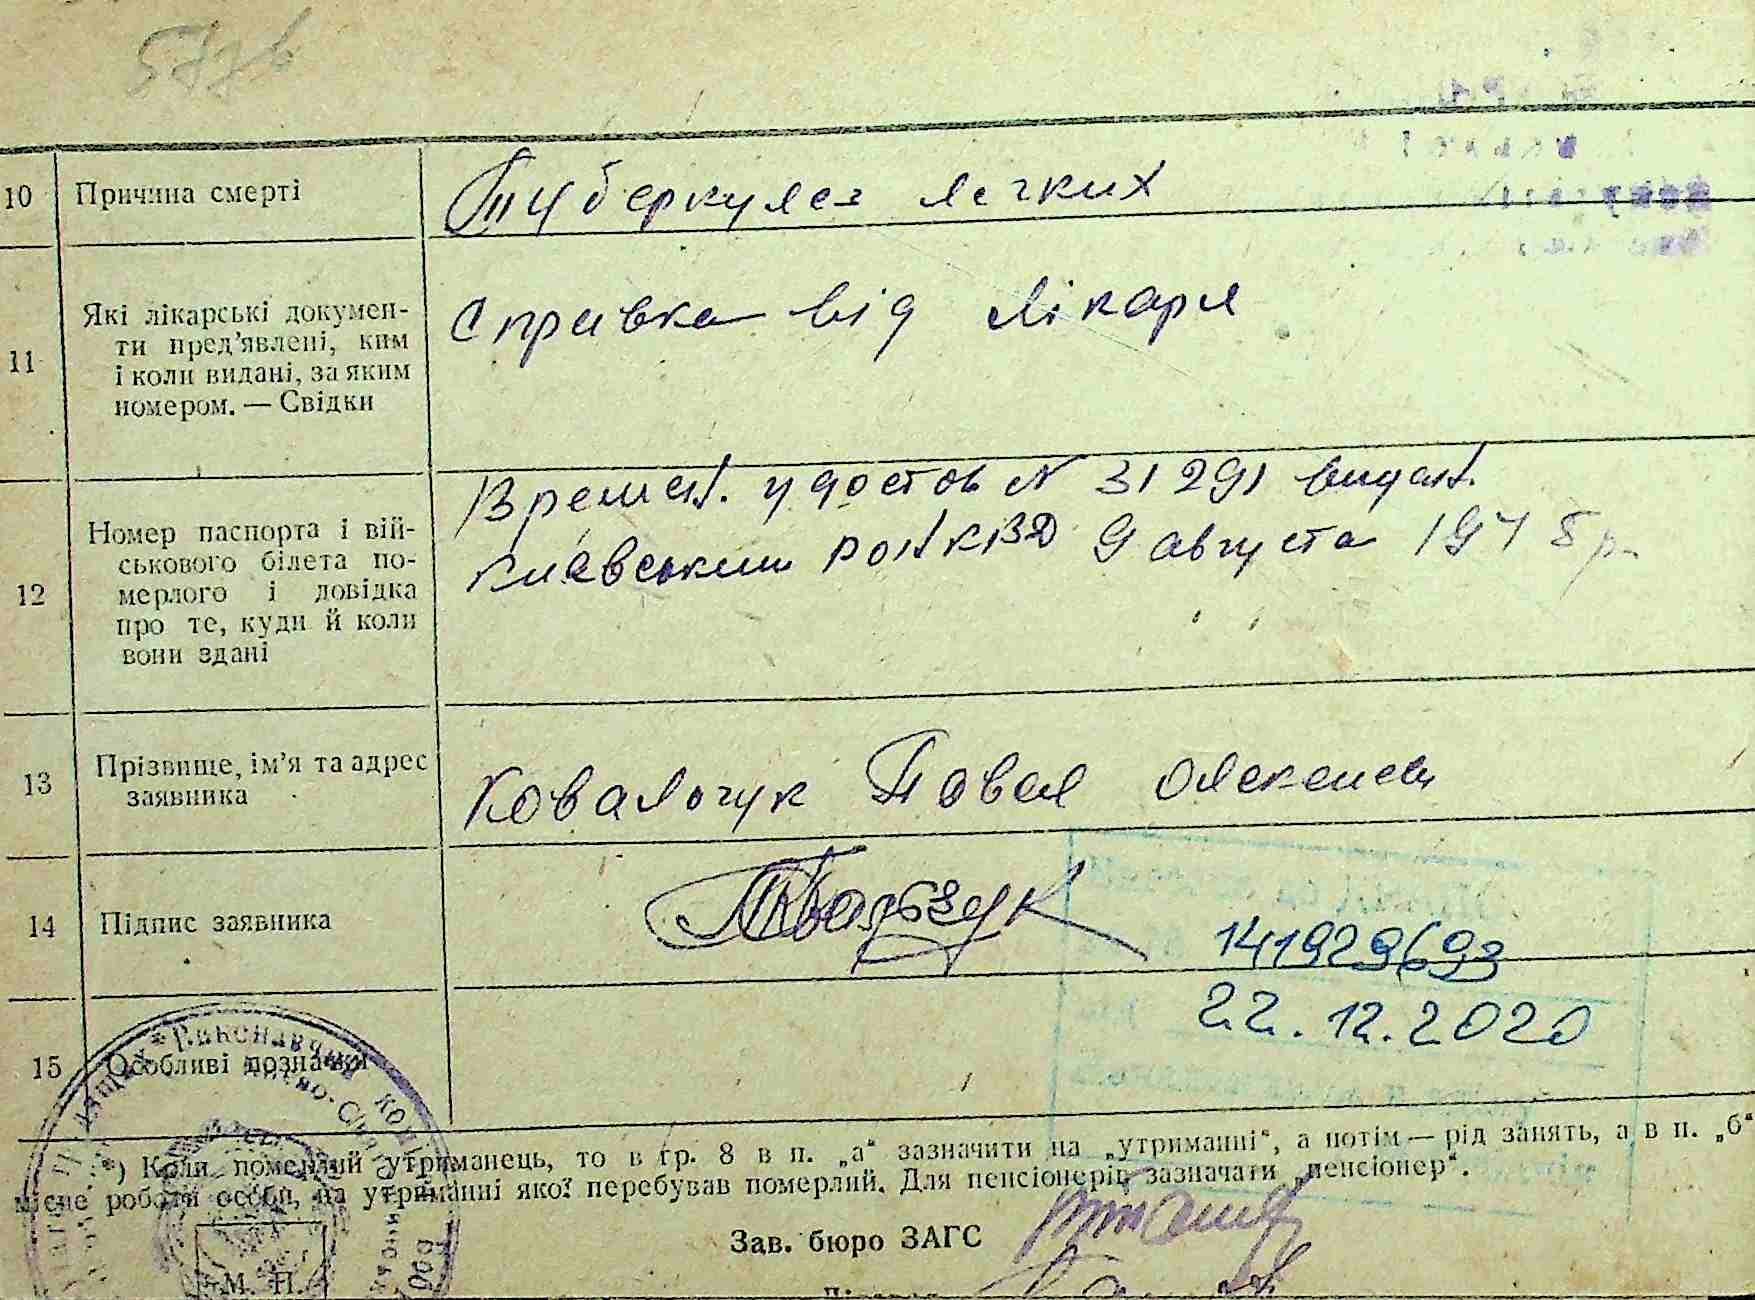 10 Причина смерті Туберкулез легких
11 Які лікарські докумен-
ти пред’явлені, ким
і коли видані, за яким
номером. — Свідки
Справка від лікаря
12 Номер паспорта і вій-
ськового білета по-
мерлого і довідка
про те, куди й коли
вони здані
Времен. удостов N 31291 видан.
Киевським РОНКВД 9 августа 194
13 Прізвище, ім’я та адрес
заявника
Ковальчук Павел
14 Підпис заявника
141929693
22.12.2020
15 Особливі познаки
*) Коли померлий утриманець, то в гр. 8 в п. „а“ зазначити на „утриманні“, а потім — рід занять, а в п. „б“
місце роботи особи, на утриманні якої перебував померлий. Для пенсіонерів зазначати „пенсіонер“.
Зав. бюро ЗАГС
М. П.